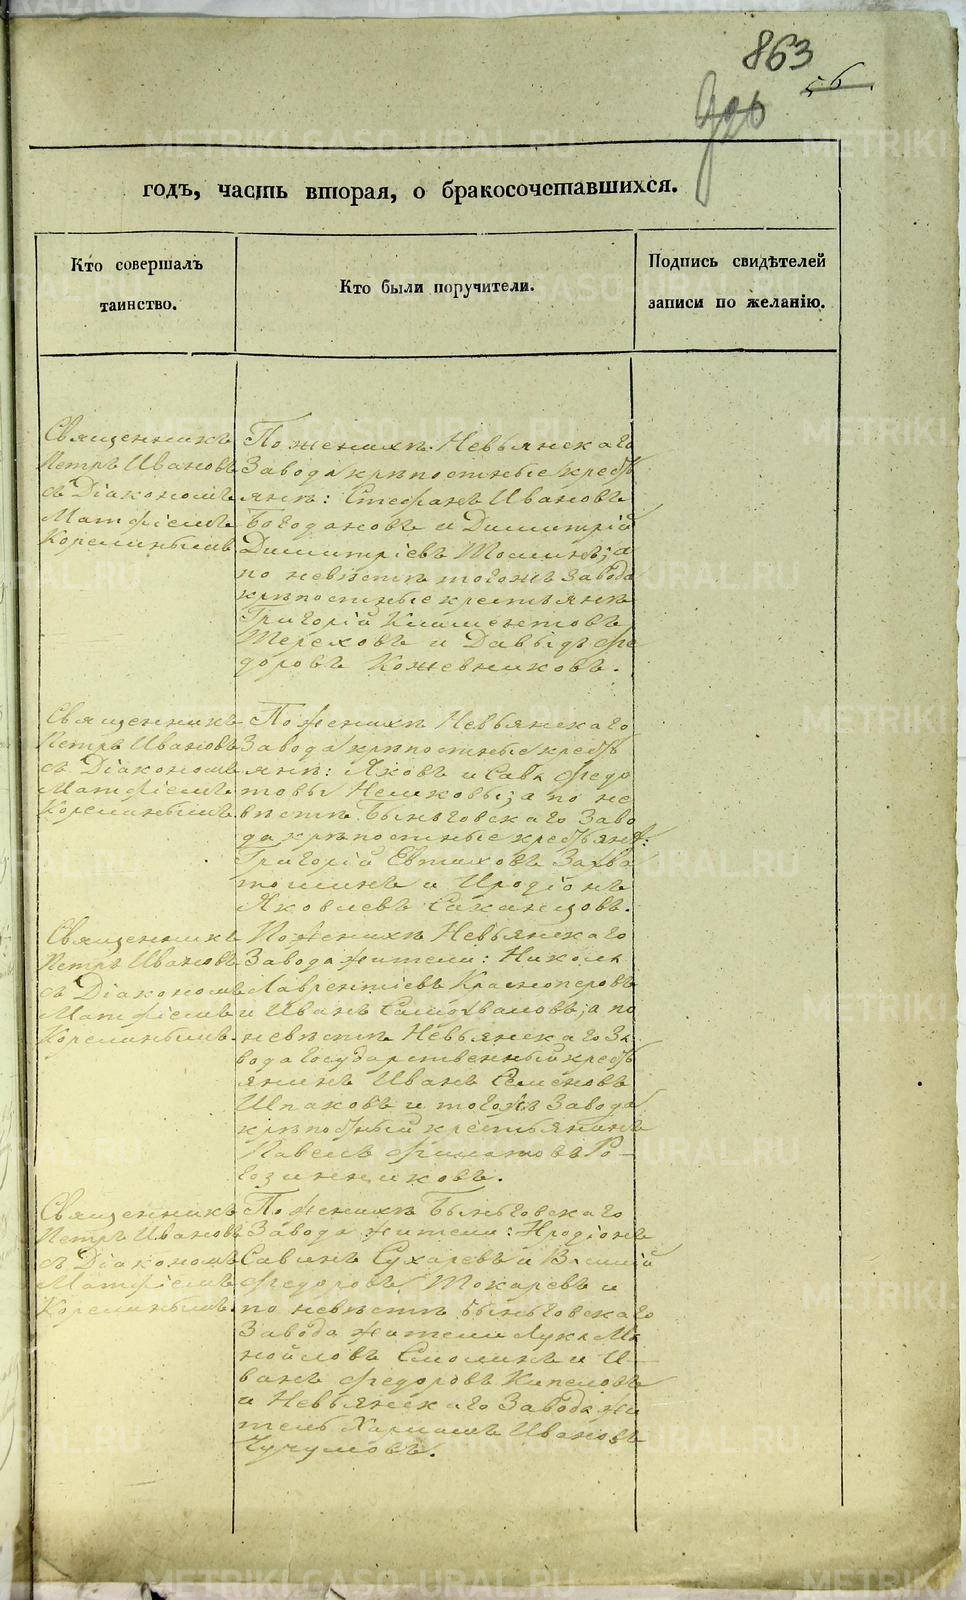 863
56
годъ, часть вторая, о бракосочетавшихся.
Кто совершалъ
таинство.
Кто были поручители.
Подпись свидѣтелей
записи по желанію.
Священникъ
Петръ Ивановъ
съ Діакономъ
Матфіемъ
По женихѣ Невьянскаго
Завода крѣпостные кресть
яне: Стефанъ Ивановъ
Богодановъ и Димитрій
Димитріевъ Томинъ; а
по невѣстѣ тогожъ Завода
крѣпостные крестьяне
Григорій Климентовъ
Тереховъ и Давыдъ Фе
доровъ Кожевниковъ.
Священникъ
Петръ Ивановъ
съ Діакономъ
Матфіемъ
По женихѣ Невьянскаго
Завода крѣпостные кресть
яне: Яковъ и Сава Федо
товы; а по не
вѣстѣ Быньговскаго Заво
да крѣпостные крестьяне:
Григорій Евтиховъ Захва
тошинъ и Иродіонъ
Яковлевъ
Священникъ
Петръ Ивановъ
съ Діакономъ
Матфіемъ
По женихѣ Невьянскаго
Завода жители: Никола
Лаврентіевъ Красноперовъ
и Иванъ Самохваловъ; а по
невѣстѣ Невьянскаго За
вода государственный кресть
янинъ Иванъ Семеновъ
Шпаковъ и тогожъ Завода
крѣпостный крестьянинъ
Павелъ Филатовъ Ро-
гозинниковъ.
Священникъ
Петръ Ивановъ
съ Діакономъ
Матфіемъ
По женихѣ Быньговскаго
Завода жители: Иродіонъ
Савинъ Сухаревъ и Василій
Федоровъ Токаревъ и
по невѣстѣ Быньговскаго
Завода жители Лука Ма
нойловъ Смолинъ и И-
ванъ Федоровъ
и Невьянскаго Завода жи
тель Харлампъ Ивановъ
Чучумовъ.
METRIKI.GASO-URAL.RU